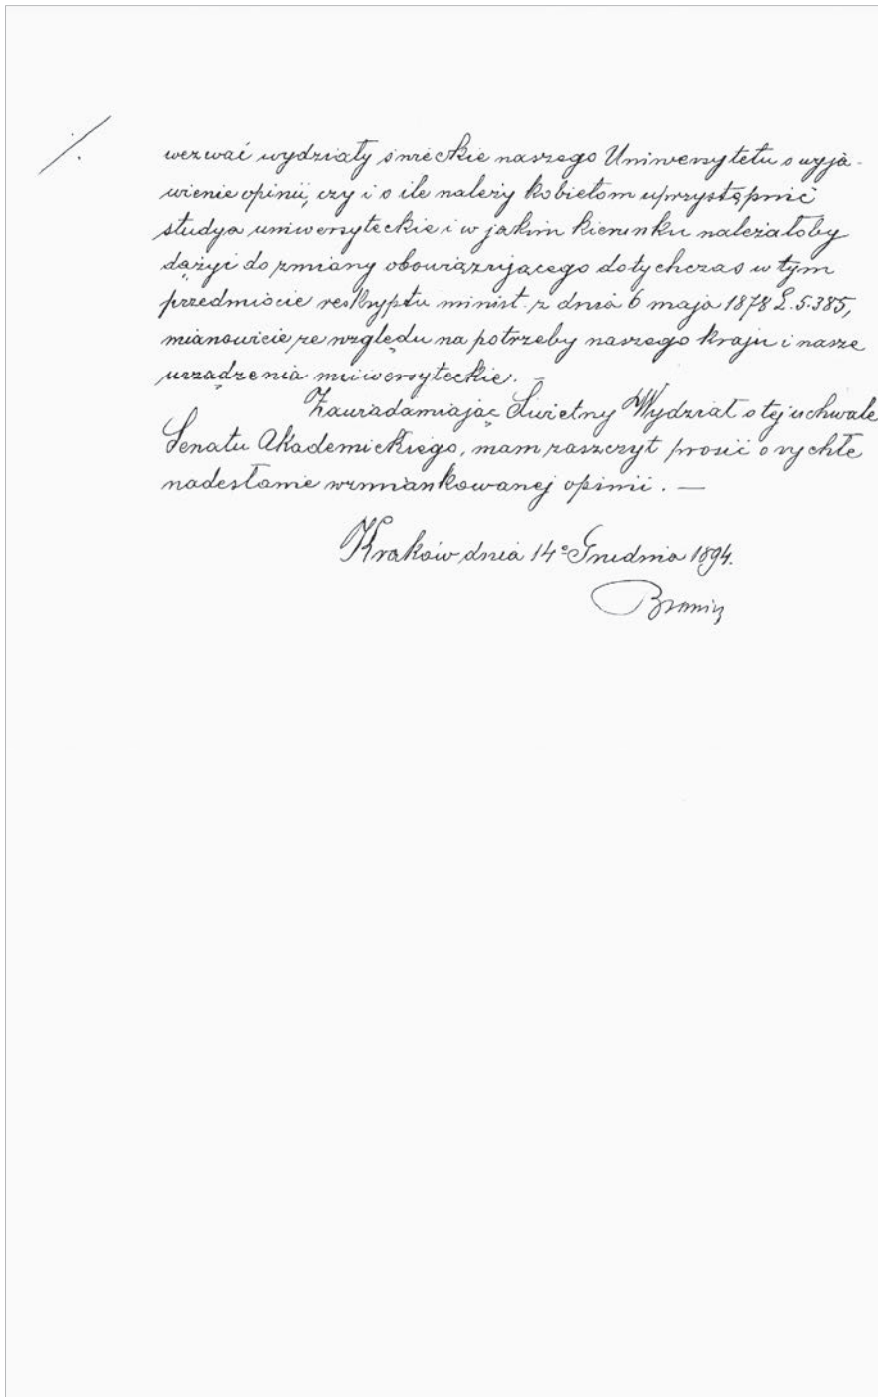 wezwać wydziały świeckie naszego Uniwersytetu o wyja-
wienie opinii, czy i o ile należy kobietom uprzystępnić
studya uniwersyteckie i w jakim kierunku należałoby
dążyć do zmiany obowiązującego dotychczas w tym
przedmiocie reskryptu minist. z dnia 6 maja 1878 L. 5.385,
mianowicie ze względu na potrzeby naszego kraju i nasze
urządzenia uniwersyteckie. —
Zawiadamiając Świetny Wydział o tej uchwale
Senatu Akademickiego, mam zaszczyt prosić o rychłe
nadesłanie wzmiankowanej opinii. —
Kraków dnia 14º Grudnia 1894.